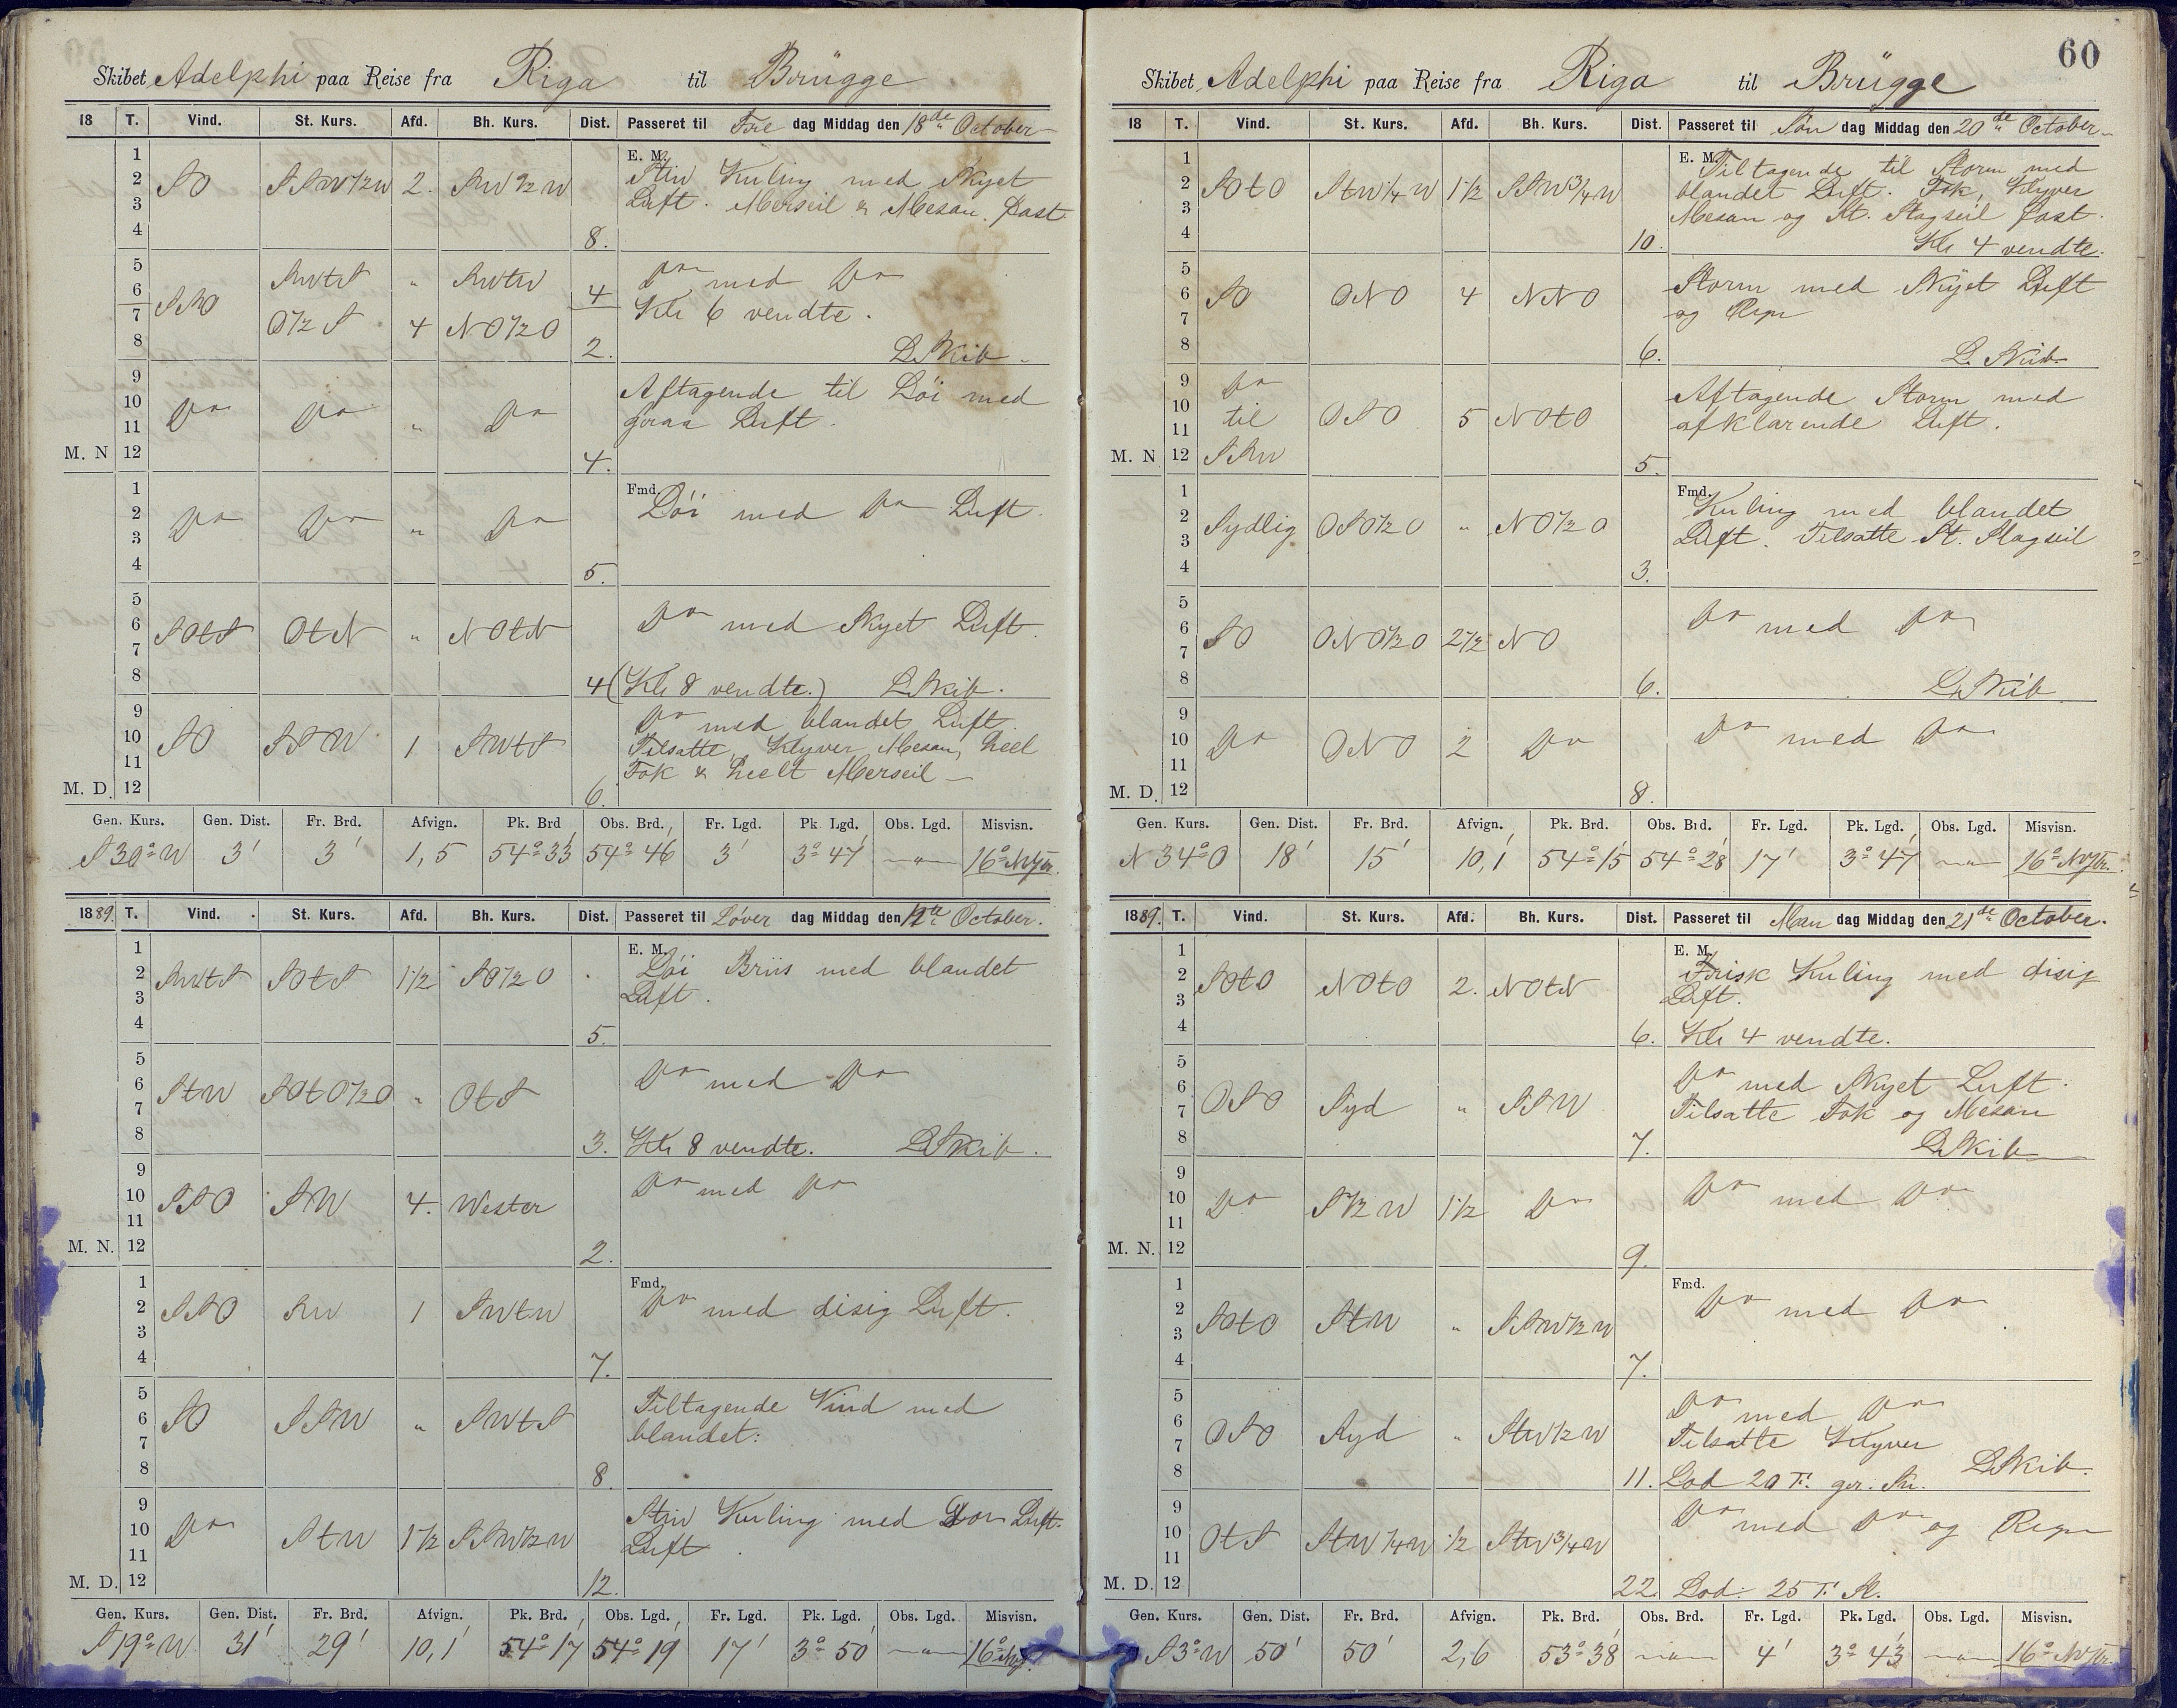 Skibet Adelphi paa Reise fra Riga til Brügge
18 T. Vind. St. Kurs. Afd. Bh. Kurs. Dist. Passeret til Fre dag Middag den 18de October
E. M.
1
2 SO SSW½W 2. SW½W Stiv Kuling med Skyet
3 Luft. Merseil & Mesan fast
4 8.
5 SWtS " SWtW Do med Do
6 SSO 4 Kle 6 vendte.
7 O½S 4 NO½O
8 2. L. Skib
9 Aftagende til Löi med
10 Do Do " Do graa Luft.
11
M. N 12 4.
Fmd.
1 Löi med Do Luft.
2 Do Do " Do
3
4 5.
5
6 SOtS OtN " NOtN Do med Skyet Luft.
7
8 4 (Kle 8 vendte.) L. Skib.
9 Do med blandet Luft.
10 SO SSW 1 SWtS Tilsatte, Klyver, Mesan, heel
11 Fok & heelt Merseil
M. D. 12 6.
Gen. Kurs. Gen. Dist. Fr. Brd. Afvign. Pk. Brd Obs. Brd. Fr. Lgd. Pk. Lgd. Obs. Lgd. Misvisn.
S30°W 3' 3' 1,5 54° 33' 54° 46' 3' 3° 47' —"— 16°
1889. T. Vind. St. Kurs. Afd. Bh. Kurs. Dist. Passeret til Löver dag Middag den October.
E. M.
1 Löi Briis med blandet
2 SWtS SOtS 1½ SO½O Luft.
3
4 5.
5
6 StW SOtO½O " OtS Do med Do
7
8 3. Kle 8 vendte. L. Skib.
9
10 SSO SW 4. Wester Do med Do
11
M. N. 12 2.
Fmd.
1
2 SSO SW 1 SWtW Do med disig Luft.
3
4 7.
5 Tiltagende Vind med
6 SO SSW " SWtS blandet:
7
8 8.
9 Stiv Kuling med Luft.
10 Do StW 1½ SSW½W Luft
11
M. D. 12 12.
Gen. Kurs. Gen. Dist. Fr. Brd. Afvign. Pk. Brd. Obs. Lgd. Fr. Lgd. Pk. Lgd. Obs. Lgd. Misvisn.
S19°W 31' 29' 10,1 54° 17' 54° 19' 17' 3° 50' —"— 16°
60
Skibet Adelphi paa Reise fra Riga til Brügge
18 T. Vind. St. Kurs. Afd. Bh. Kurs. Dist. Passeret til Søn dag Middag den 20de October
E. M.
1 Tiltagende til Storm med
2 SOtO StW¼W 1½ SSW¾W blandet Luft. Fok, Klyver
3 Mesan og St. Stagseil fast.
4 10. Kle 4 vendte.
5
6 SO ONO 4 NNO Storm med Skyet Luft
7 og Regn
8 6. L. Skib
9 Do Aftagende Storm med
10 til OSO 5 NOtO afklarende Luft.
11
M. N 12 SSW 5.
Fmd.
1 Kuling med blandet
2 Sydlig OSO½O " NO½O Luft. Tilsatte St. Stagseil
3
4 3.
5
6 SO ONO½O 2½ NO Do med Do
7
8 6. L. Skib
9
10 Do ONO 2 Do Do med Do
11
M. D. 12 8.
Gen. Kurs. Gen. Dist. Fr. Brd. Afvign. Pk. Brd. Obs. Brd. Fr. Lgd. Pk. Lgd. Obs. Lgd. Misvisn.
N34°O 18' 15' 10,1 54° 15' 54° 28' 17' 3° 47' —"— 16°
1889. T. Vind. St. Kurs. Afd. Bh. Kurs. Dist. Passeret til Man dag Middag den 21de October.
E. M.
1 Frisk Kuling med disig
2 SOtO NOtO 2. NOtN Luft.
3
4 6. Kle 4 vendte.
5 Do med Skyet Luft.
6 OSO Syd " SSW Tilsatte Fok og Mesan
7
8 7. L. Skib
9
10 Do S½W 1½ Do Do med Do
11
M. N. 12 9.
Fmd.
1
2 SOtO StW " SSW½W Do med Do
3
4 7.
5 Do med Do
6 OSO Syd " StW½W Tilsatte Klyver
7
8 11. Lod 20 F. gr. Sn. L. Skib.
9
10 OtS StW¼W ½ StW¾W Do med Do og Regn
11
M. D. 12 22. Lod: 25 F. Sl.
Gen. Kurs. Gen. Dist. Fr. Brd. Afvign. Pk. Brd. Obs. Brd. Fr. Lgd. Pk. Lgd. Obs. Lgd. Misvisn.
S3°W 50' 50' 2,6 53° 38' —"— 4' 3° 43' —"— 16°